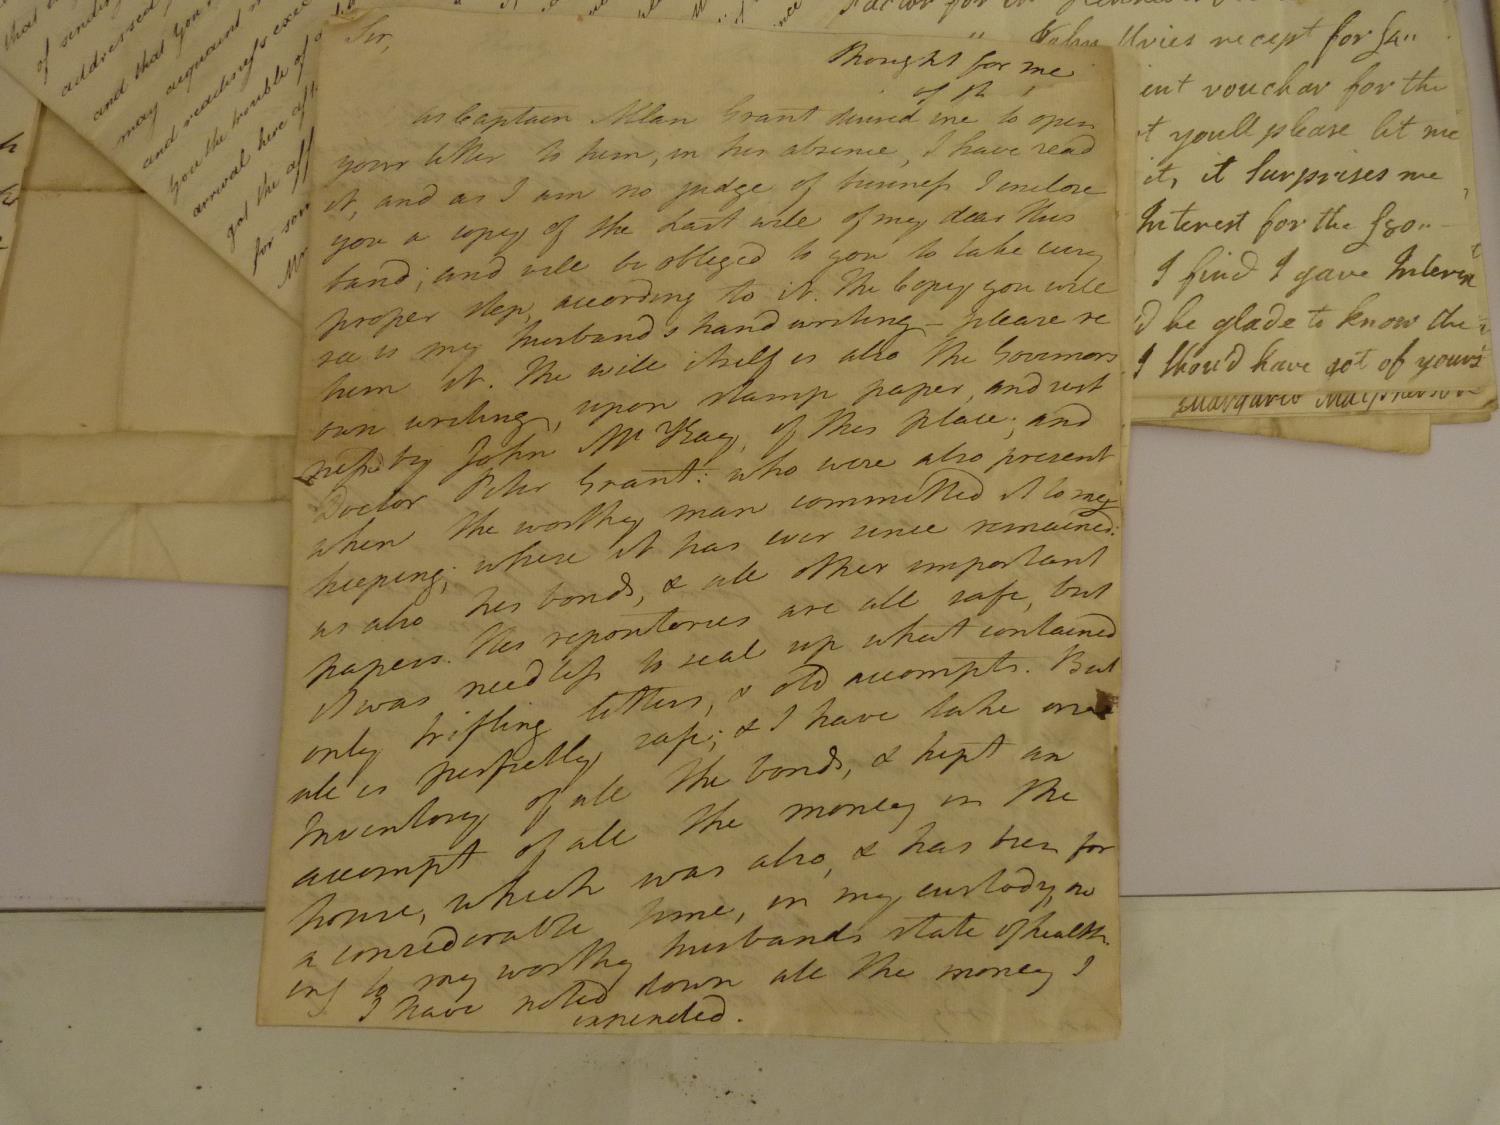 Sir,
thought for me
of th
as Captain Allan Grant desired me to open
your letter to him, in his absence, I have read
it, and as I am no judge of business I inclose
you a copy of the Last will of my dear Hus
band; and will be obliged to you to take every
proper step, according to it. The Copy you will
see is my husbands hand writing - please re
turn it. The will itself is also the Governors
own writing, upon stamp paper, and wit
ness'd by John McKay, of this place; and
Doctor Peter Grant: who were also present
when the worthy man committed it to my
keeping; where it has ever since remained:
as also his bonds, & all other important
papers. His repositories are all safe, but
it was needless to seal up what contained
only trifling letters, & old accompts. But
all is perfectly safe; & I have take one
Inventory of all the bonds, & kept an
accompt of all the money in the
house, which was also, & has been for
a considerable time, in my custody, ow
ing to my worthy husbands state of health.
I have noted down all the money I
expended.
that
of sending
addressed
and that you
may acquaint
and readiness exe
you the trouble of
arrival here aft
got the aff
for som
Factor for
John Uries recept for £
ent vouchar for the
t youll please let me
it, it Surprises me
Interest for the £80
I find I gave
'd be glade to know the
I shou'd have got of yours
Margaret Macpherson